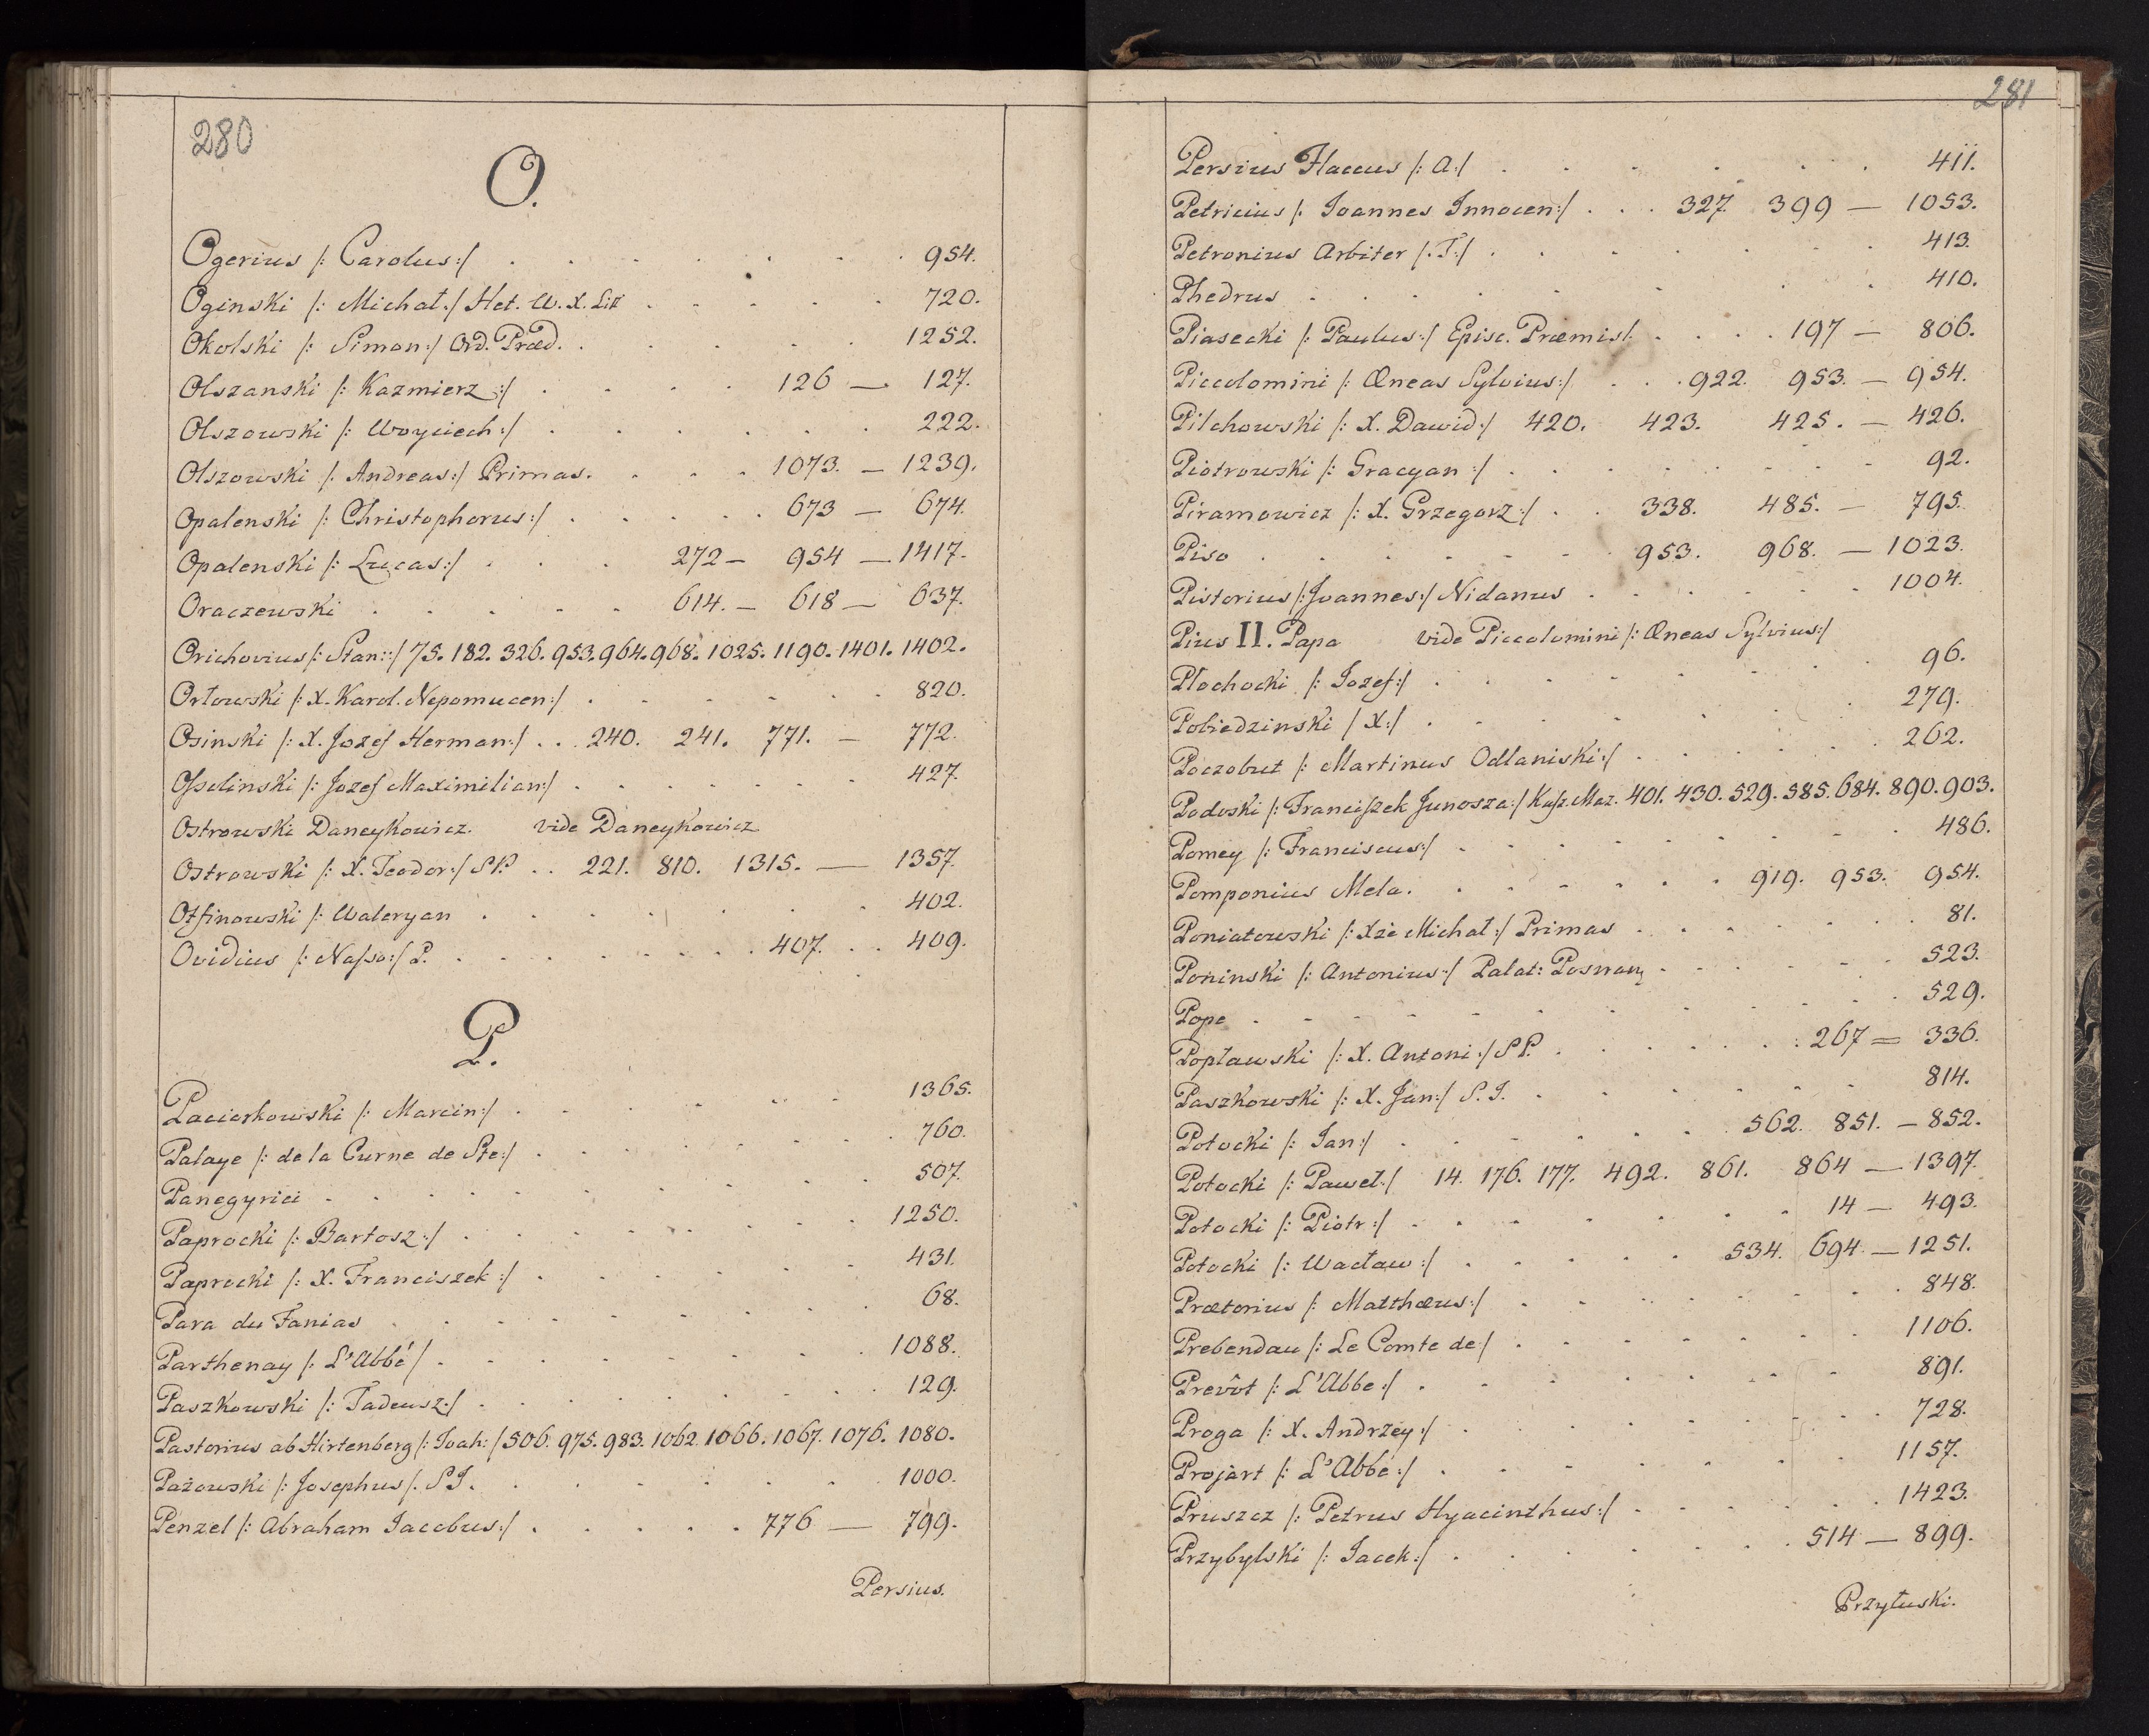 280
O.
Ogerius /: Carolus:/ . . . . . . . 954.
Oginski /: Michał:/ Het. W. X. Litt . . . . . 720.
Okolski /: Simon:/ Ord. Præd. . . . . . 1252.
Olszanski /: Kazmierz:/ . . . . 126 — 127.
Olszowski /: Woyciech:/ . . . . . . 222.
Olszowski /: Andreas:/ Primas. . . . 1073. — 1239.
Opalenski /: Christophorus:/ . . . . . 673 — 674.
Opalenski /: Lucas:/ . . . 272 — 954 — 1417.
Oraczewski . . . . . 614. — 618 — 637.
Orichovius /: Stan::/ 75. 182. 326. 953. 964. 968. 1025. 1190. 1401. 1402.
Orłowski /: X. Karol. Nepomucen:/ . . . . . 820.
Osinski /: X. Jozef Herman:/ . . 240. 241. 771. — 772.
Ossolinski /: Jozef Maximilian:/ . . . . . . 427.
Ostrowski Daneykowicz. vide Daneykowicz
Ostrowski /: X. Teodor:/ S.P. . . 221. 810. 1315. — 1357.
Otfinowski /: Waleryan . . . . . . . 402.
Ovidius /: Nasso:/ P. . . . . . . . 407. . . 409.
P.
Paciorkowski /: Marcin:/ . . . . . . 1365.
Palaye /: de la Curne de Ste:/ . . . . . . 760.
Panegyrici . . . . . . . . . 507.
Paprocki /: Bartosz:/ . . . . . . . 1250.
Paprocki /: X. Franciszek:/ . . . . . . 431.
Para du Fanias . . . . . . . 68.
Parthenay /: L'Abbé/ . . . . . . . . 1088.
Paszkowski /: Tadeusz:/ . . . . . . . . 129.
Pastorius ab Hirtenberg /: Joah:/ 506. 975. 983. 1062. 1066. 1067. 1076. 1080.
Pażowski /: Josephus/. S I. . . . . . . . 1000.
Penzel /: Abraham Iacobus:/ . . . . . 776 — 799.
Persius.
281
Persius Flaccus /: A:/ . . . . . . . 411.
Petricius /: Ioannes Innocen:/ . . . 327. 399 — 1053.
Petronius Arbiter /. T:/ . . . . . . . 413.
Phedrus . . . . . . . . . 410.
Piasecki /: Paulus:/ Episc. Præmisl. . . . . 197 — 806.
Piccolomini /: Æneas Sylvius:/ . . . 922. 953. — 954.
Pilchowski /: X. Dawid:/ 420. 423. 425. — 426.
Piotrowski /: Gracyan:/ . . . . . . . . 92.
Piramowicz /: X. Grzegorz:/ . . 338. 485. — 795.
Piso . . . . . . . 953. 968. — 1023.
Pistorius /: Joannes:/ Nidanus . . . . . . 1004.
Pius II. Papa vide Piccolomini /: Æneas Sylvius:/
Płochocki /: Jozef:/ . . . . . . . 96.
Pobiedzinski / X:/ . . . . . . . 279.
Poczobut /: Martinus Odlaniski:/ . . . . . . 262.
Podoski /: Franciszek Junosza:/ Kasz. Maz. 401. 430. 529. 585. 684. 890. 903.
Pomey /: Franciscus:/ . . . . . . . 486.
Pomponius Mela. . . . . . . . 919. 953. 954.
Poniatowski /: Xże Michał:/ Primas . . . . . . 81.
Poninski /: Antonius:/ Palat: Posnan . . . . . . 523.
Pope . . . . . . . . . . 529.
Popławski /: X. Antoni:/ S P. . . . . . . 267 = 336.
Paszkowski /: X. Jan:/ S. I. . . . . . . 814.
Potocki /: Jan:/ . . . . . . . 562. 851. — 852.
Potocki /: Paweł:/ 14. 176. 177. 492. 861. 864 — 1397.
Potocki /: Piotr:/ . . . . . . . 14 — 493.
Potocki /: Wacław:/ . . . . . 534. 694. — 1251.
Prætorius /: Matthæus:/ . . . . . . . 848.
Prebendau /: Le Comte de:/ . . . . . . . 1106.
Prevôt /: L'Abbe:/ . . . . . . . 891.
Proga /: X. Andrzey:/ . . . . . . . 728.
Projart /: L'Abbé:/ . . . . . . . 1157.
Pruszcz /: Petrus Hyacinthus:/ . . . . . . 1423.
Przybylski /: Jacek:/ . . . . . . . 514 — 899.
Przyłuski.